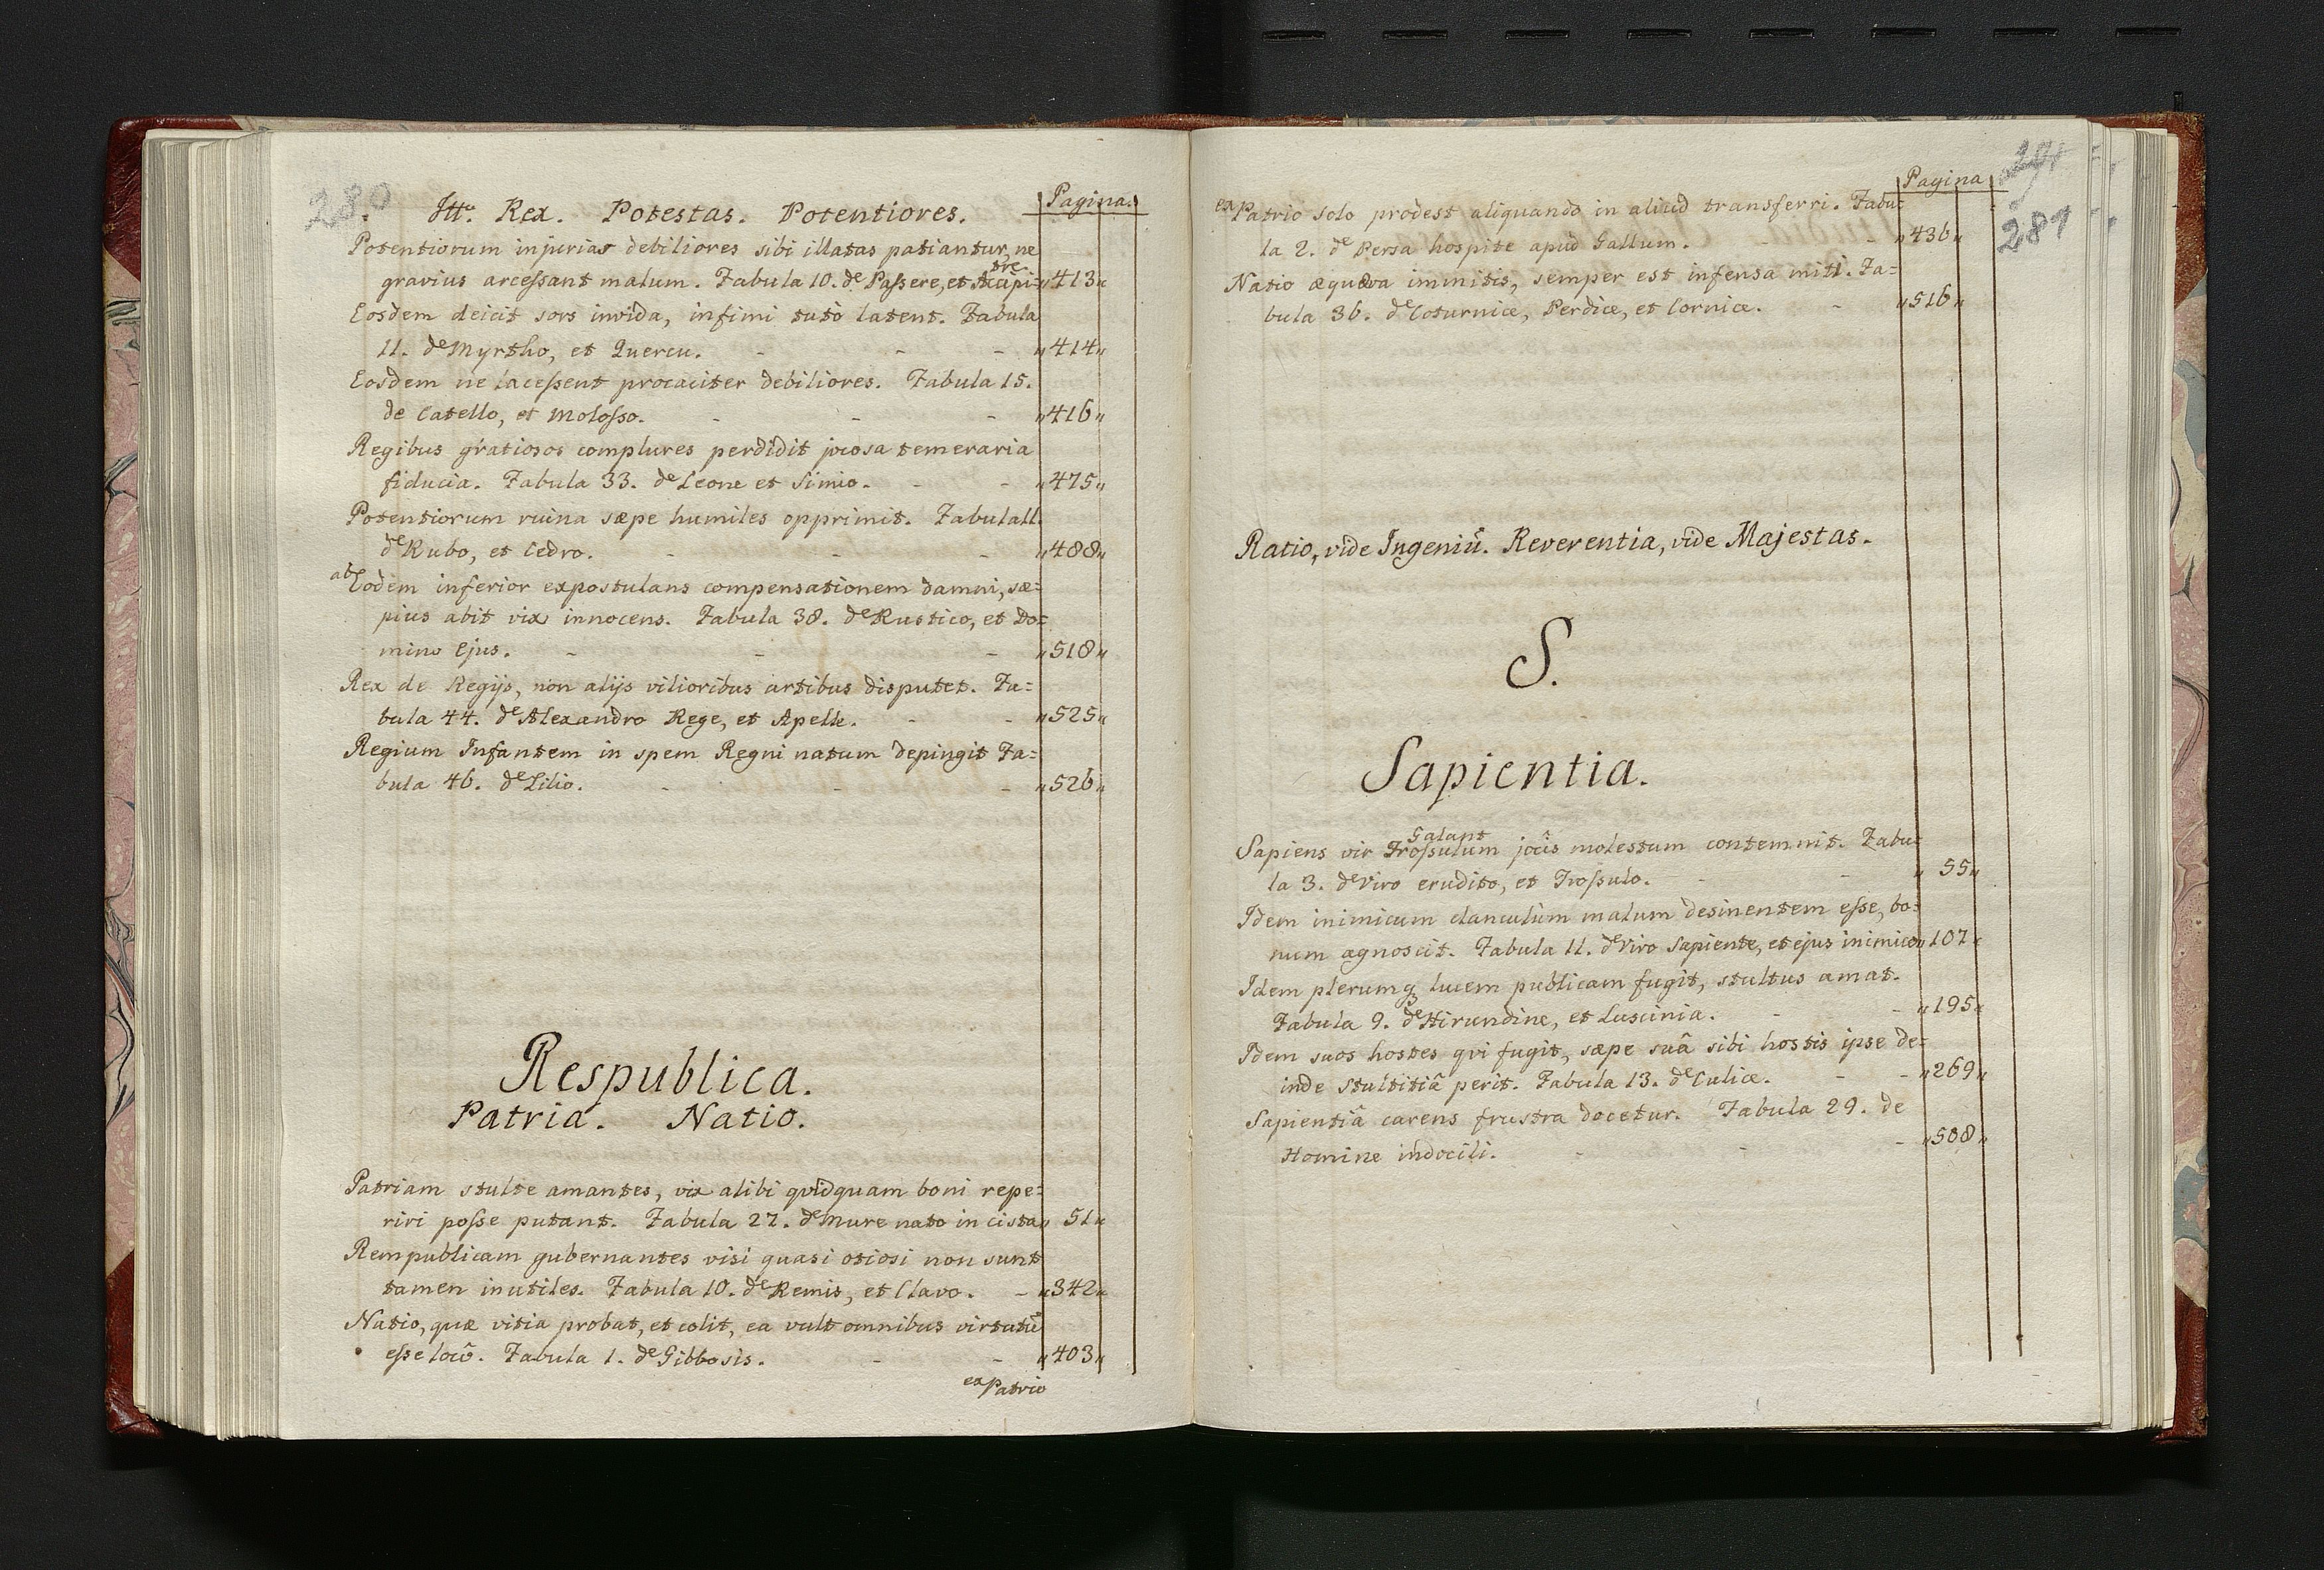 280
Itt. Rex. Potestas. Potentiores. Pagina.
Potentiorum injurias debiliores sibi illatas patiantur, ne
gravius arcessant malum. Fabula 10. de Passere, et Accipi= „413„
tre
Eosdem deicit sors invida, infimi tutò latent. Fabula
11. de Myrtho, et Quercu. - - - „414„
Eosdem ne lacessent procaciter debiliores. Fabula 15.
de Catello, et Molosso. - - - „416„
Regibus gratiosos complures perdidit jocosa temeraria
fiducia. Fabula 33. de Leone et Simio. - - „475„
Potentiorum ruina sæpe humiles opprimit. Fabula 11.
de Rubo, et Cedro. - - - „488„
ab Eodem inferior expostulans compensationem damni, sæ=
pius abit vix innocens. Fabula 38. de Rustico, et Do=
mino Ejus. - - - „518„
Rex de Regijs, non alijs vilioribus artibus disputet. Fa=
bula 44. de Alexandro Rege, et Apelle. - - „525„
Regium Infantem in spem Regni natum depingit Fa=
bula 46. de Lilio. - - - „526„
Respublica.
Patria. Natio.
Patriam stulte amantes, vix alibi qvidquam boni repe=
riri posse putant. Fabula 27. de Mure nato in cista „ 51„
Rempublicam gubernantes visi quasi otiosi non sunt
tamen inutiles. Fabula 10. de Remis, et Clavo. - „342„
Natio, quæ vitia probat, et colit, ea vult omnibus virtutū
esse locô. Fabula 1. de Gibbosis. - - „403„
ex Patrio
Pagina
281
ex Patrio solo prodest aliquando in aliud transferri. Fabu=
la 2. de Persa hospite apud Gallum. - - „436„
Natio æquæva immitis, semper est infensa miti. Fa=
bula 36. de Coturnice, Perdice, et Cornice. - „516„
Ratio, vide Ingeniū. Reverentia, vide Majestas.
S.
Sapientia.
Galant
Sapiens vir Trossulum jocîs molestum contemnit. Fabu=
la 3. de Viro erudito, et Trossulo. - - „ 55„
Idem inimicum clanculùm malum desinentem esse, bo=
num agnoscit. Fabula 11. de Viro Sapiente, et ejus inimico „107„
Idem plerumqꝫ lucem publicam fugit, stultus amat.
Fabula 9. de Hirundine, et Luscinia. - - „195„
Idem suos hostes qvi fugit, sæpe suâ sibi hostis ipse de=
inde stultitiâ perit. Fabula 13. de Culice. - - „269„
Sapientiâ carens frustra docetur. Fabula 29. de
Homine indocili. - - - „508„